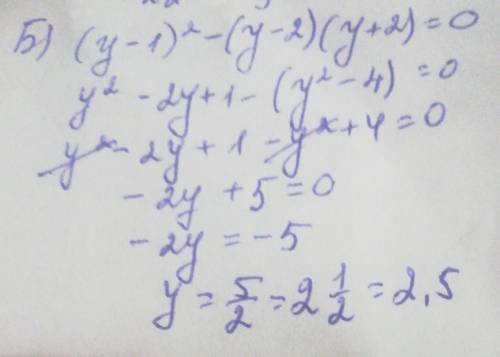 Б) (y-1)² - (y-2)(y+2) = 0
y² - 2y + 1 - (y² - 4) = 0
y² - 2y + 1 - y² + 4 = 0
- 2y + 5 = 0
- 2y = - 5
y = 5/2 = 2 1/2 = 2,5